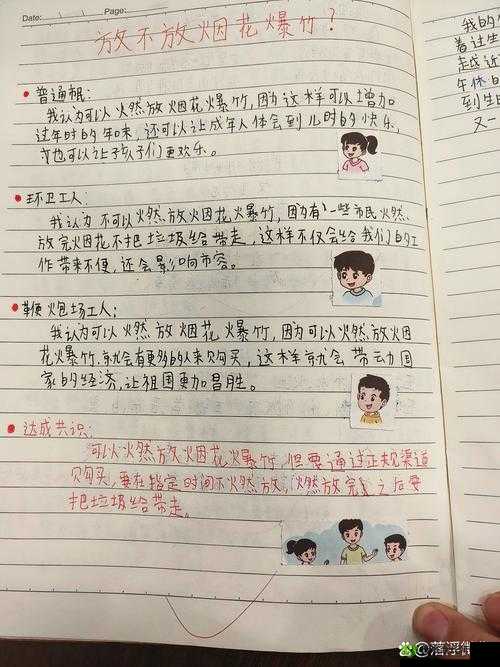 Date: Page:
放不放烟花爆竹？
普通民:
我认为可以燃放烟花爆竹，因为这样可以增加
过年时的年味，还可以让成年人体会到儿时的快乐，
也可以让孩子们更欢乐。
环卫工人:
我认为不可以燃放烟花爆竹，因为有一些市民燃
放完烟花不把垃圾给带走，这样不仅会给我们的工
作带来不便，还会影响市容。
鞭炮场工人:
我认为可以燃放烟花爆竹，因为可以燃放烟
花爆竹，就会有更多的人来购买，这样就会带动国
家的经济，让祖国更加昌胜。
达成共识:
可以燃放烟花爆竹，但要通过正规渠道
购买，要在指定时间燃放，燃放完之后要
把垃圾给带走。
我的
着过生
越近
午休
到生日
又一
@落浮微